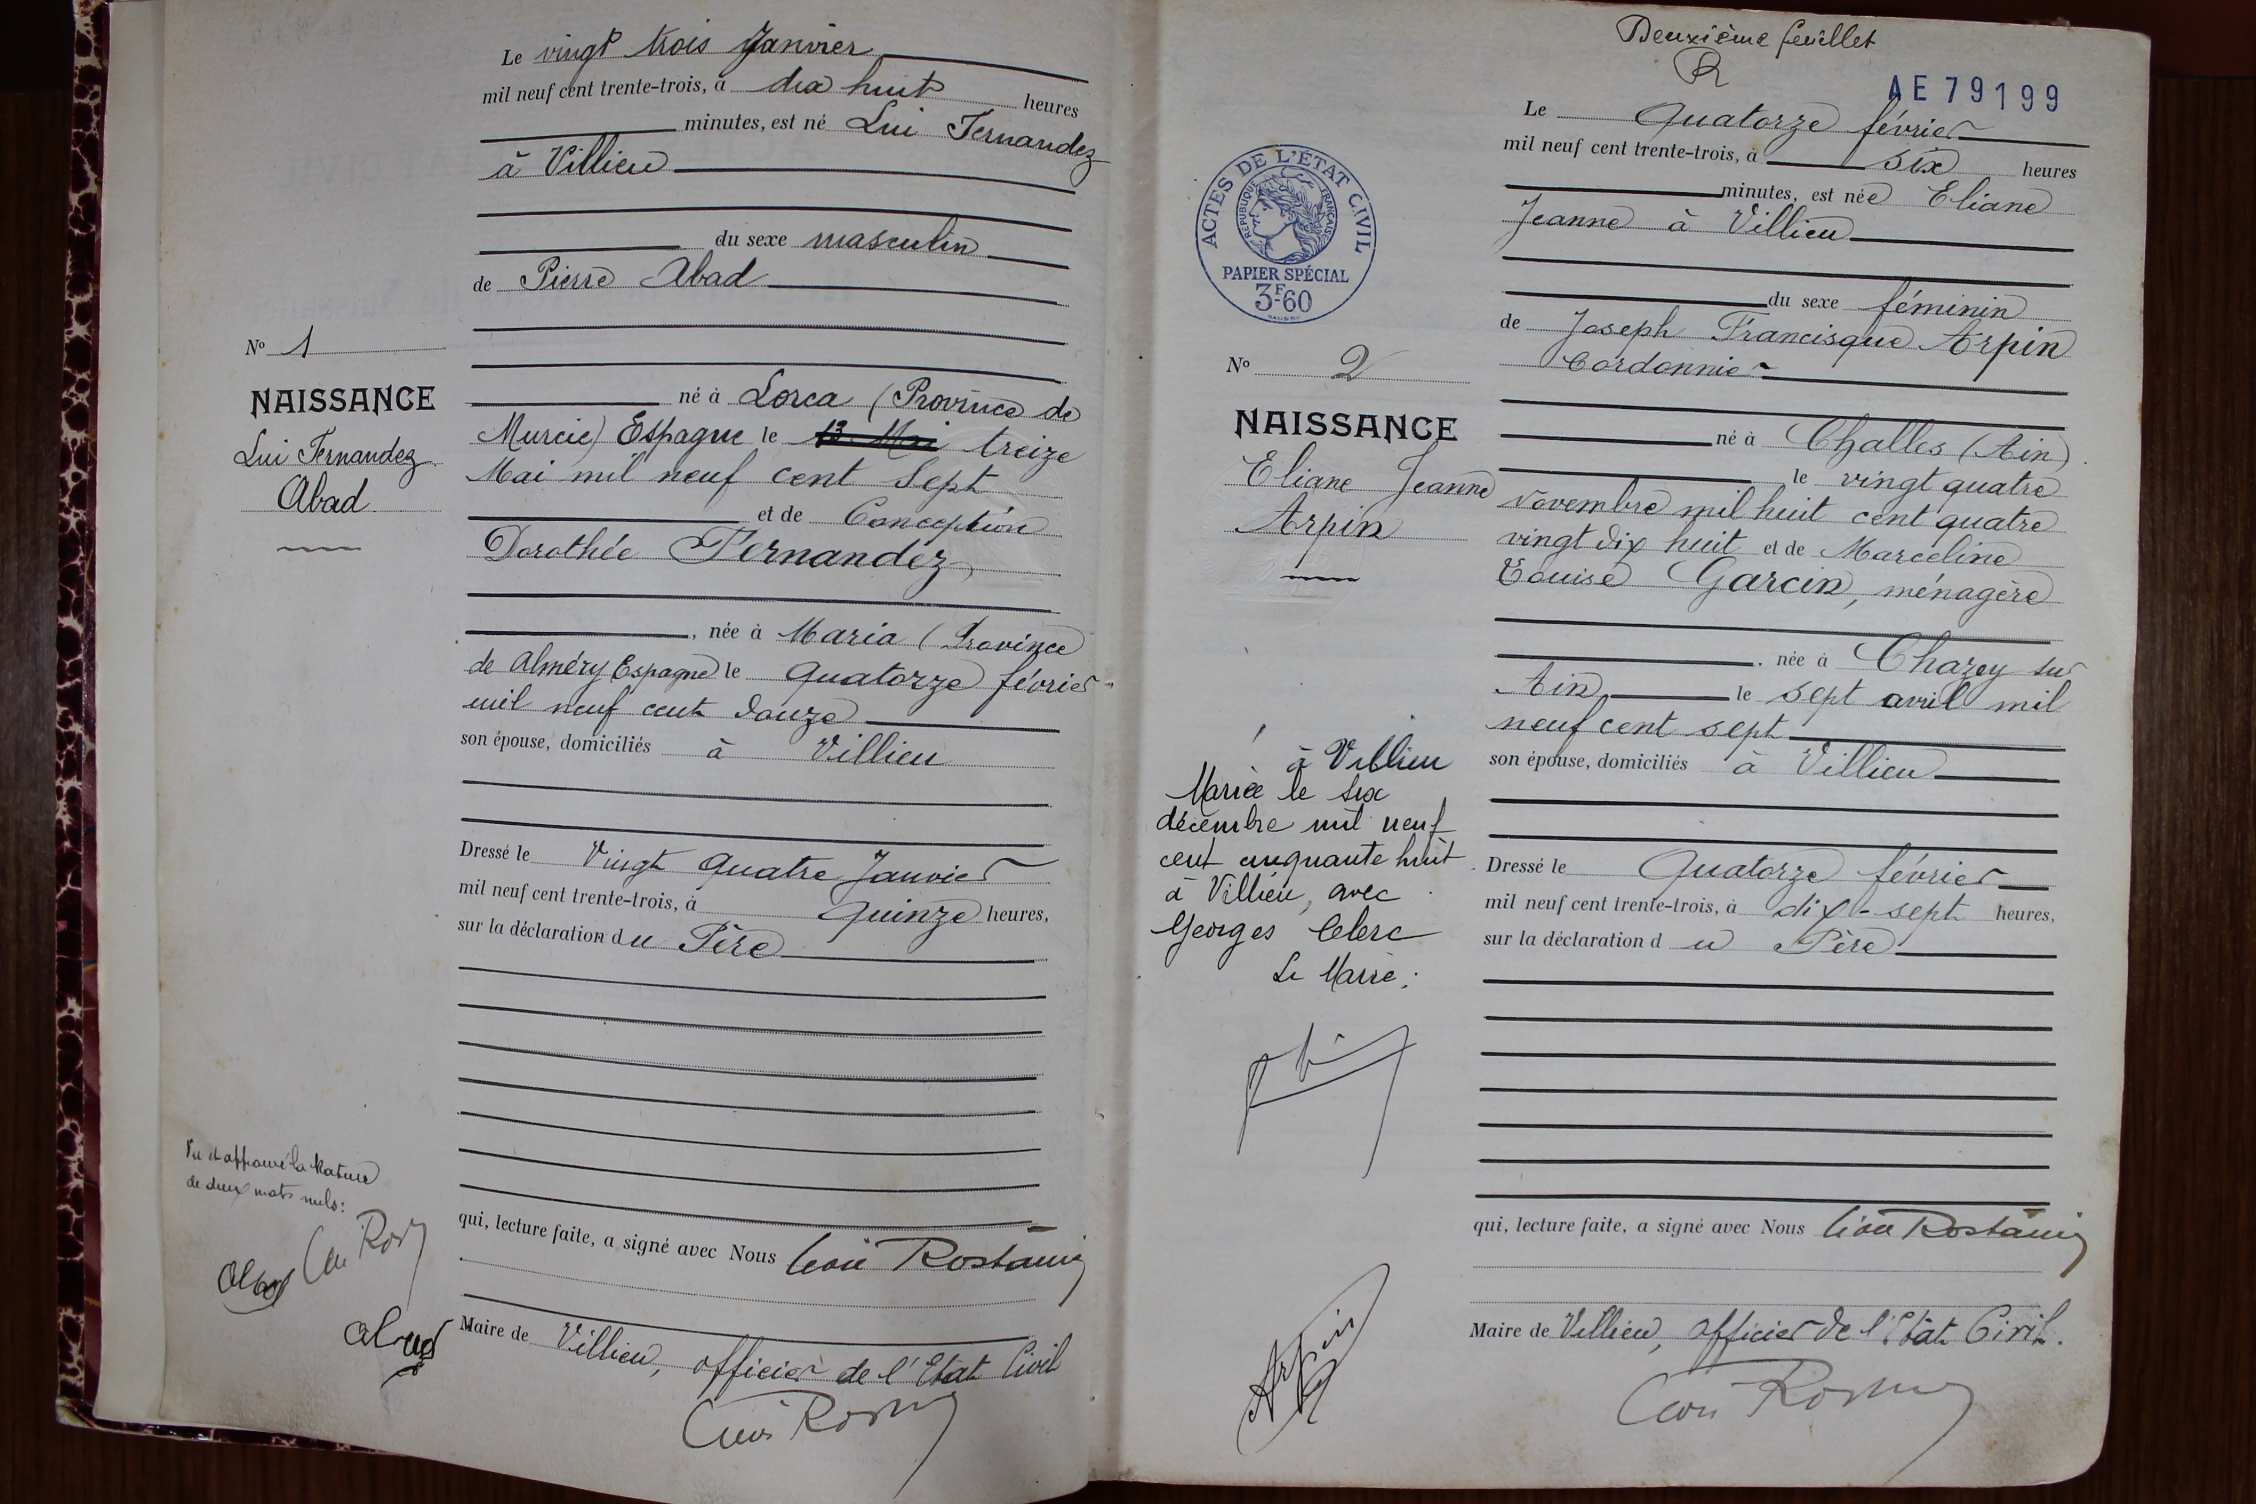 Le vingt trois Janvier
mil neuf cent trente-trois, à dix huit heures
minutes, est né Lui Fernandez
à Villieu
du sexe masculin
de Pierre Abad
né à Lorca (Province de
Murcie) Espagne le 13 Mai treize
Mai mil neuf cent Sept
et de Conception
Dorothée Fernandez,
, née à Maria (Province
de Alméry Espagne) le quatorze février
mil neuf cent douze
son épouse, domiciliés à Villieu
Dressé le Vingt quatre Janvier
mil neuf cent trente-trois, à quinze heures,
sur la déclaration du Père
qui, lecture faite, a signé avec Nous Léon Rostaing
Maire de Villieu, officier de l'Etat Civil
No 1
NAISSANCE
Lui Fernandez
Abad
Vu et approuvé la Rature
de deux mots nuls:
Abad
Abad
Deuxième feuillet
AE 79199
ACTES DE L'ÉTAT CIVIL
RÉPUBLIQUE FRANÇAISE
PAPIER SPÉCIAL
3F60
Le Quatorze février
mil neuf cent trente-trois, à six heures
minutes, est née Eliane
Jeanne à Villieu
du sexe féminin
de Joseph Francisque Arpin
Cordonnier
né à Challes (Ain)
le vingt quatre
Novembre mil huit cent quatre
vingt dix huit et de Marceline
Louise Garcin, ménagère
. née à Chazey sur
Ain le sept avril mil
neuf cent sept
son épouse, domiciliés à Villieu
Dressé le Quatorze février
mil neuf cent trente-trois, à dix-sept heures,
sur la déclaration du Père
qui, lecture faite, a signé avec Nous Léon Rostaing
Maire de Villieu, officier de l'Etat Civil.
No 2
NAISSANCE
Eliane Jeanne
Arpin
à Villieu
Mariée le six
décembre mil neuf
cent cinquante huit
à Villieu, avec
Georges Clerc
Le Maire:
Arpin